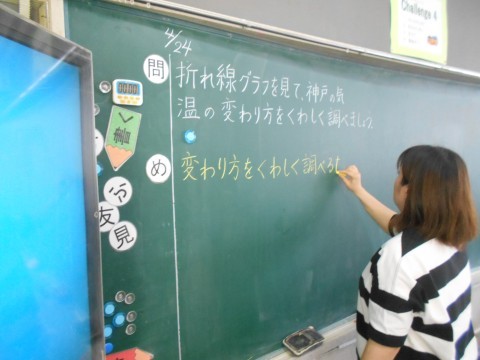 Challenge 4
4/24
問
折れ線グラフを見て、神戸の気
温の変わり方をくわしく調べましょう。
め
変わり方をくわしく調べる
書
ふ
友
見